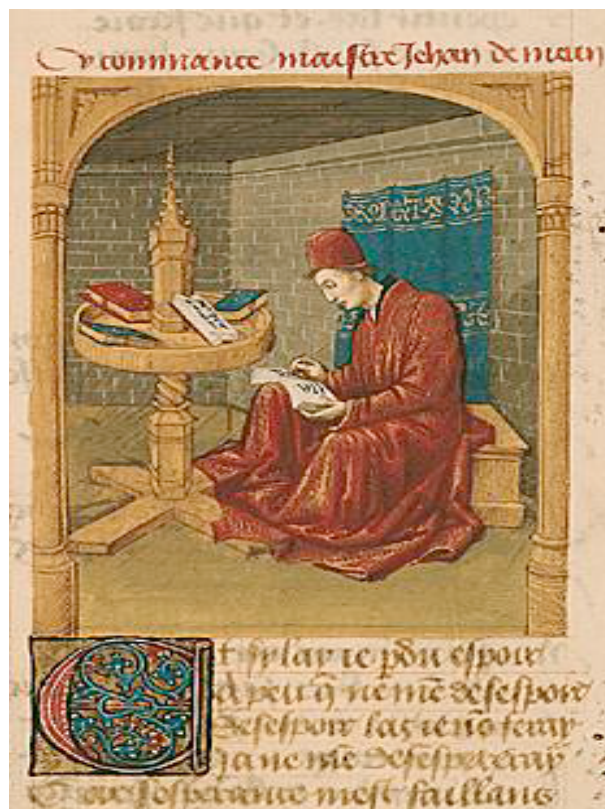 Cy commance maistre Jehan de meun
Et sy lay ie pdu espoir
A peu q ne me desespoir
Desespoir las ie no feray
Ja ne me desespereray
Car sesperance mest faillans